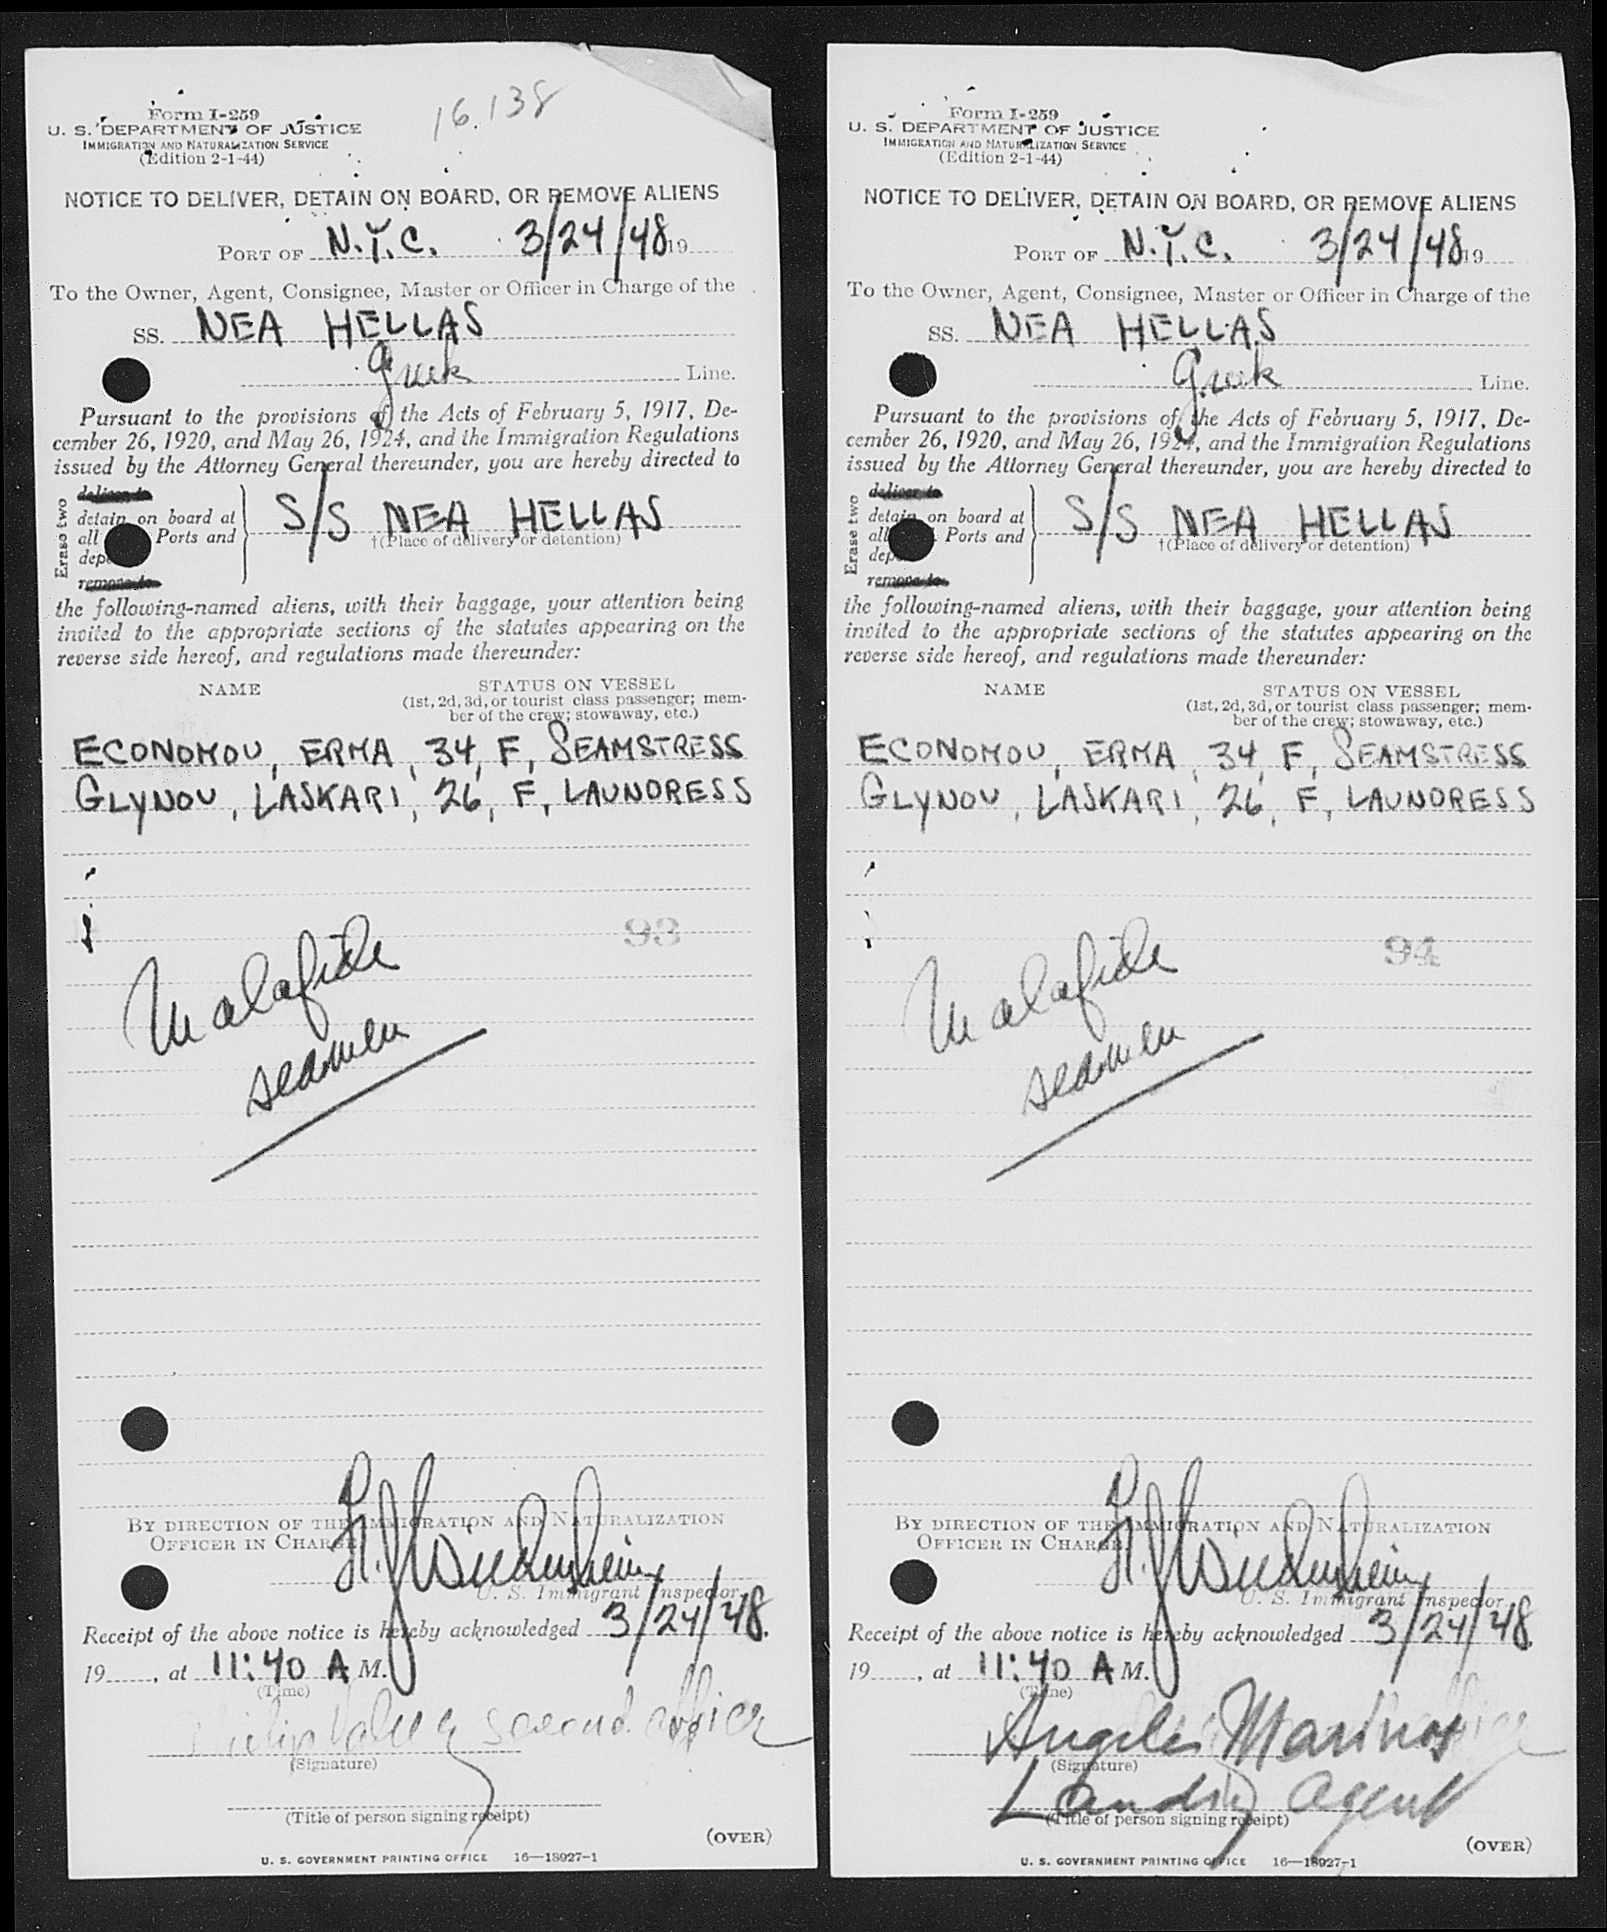 16.138
Form I-259
U. S. DEPARTMENT OF JUSTICE
IMMIGRATION AND NATURALIZATION SERVICE
(Edition 2-1-44)
NOTICE TO DELIVER, DETAIN ON BOARD, OR REMOVE ALIENS
PORT OF N.Y.C. 3/24/48 19
To the Owner, Agent, Consignee, Master or Officer in Charge of the
SS. NEA HELLAS
Greek Line.
Pursuant to the provisions of the Acts of February 5, 1917, De-
cember 26, 1920, and May 26, 1924, and the Immigration Regulations
issued by the Attorney General thereunder, you are hereby directed to
Erase two
deliver to
detain on board at
all Ports and
S/S NEA HELLAS
†(Place of delivery or detention)
remove to
the following-named aliens, with their baggage, your attention being
invited to the appropriate sections of the statutes appearing on the
reverse side hereof, and regulations made thereunder:
NAME STATUS ON VESSEL
(1st, 2d, 3d, or tourist class passenger; mem-
ber of the crew; stowaway, etc.)
ECONOMOU, ERMA, 34, F, SEAMSTRESS
GLYNOU, LASKARI, 26, F, LAUNDRESS
93
Malafide
seamen
BY DIRECTION OF THE IMMIGRATION AND NATURALIZATION
OFFICER IN CHARGE.
U. S. Immigrant Inspector.
Receipt of the above notice is hereby acknowledged 3/24/48.
19, at 11:40 A M.
(Time)
second officer
(Signature)
(Title of person signing receipt)
(OVER)
U. S. GOVERNMENT PRINTING OFFICE 16—18927-1
Form I-259
U. S. DEPARTMENT OF JUSTICE
IMMIGRATION AND NATURALIZATION SERVICE
(Edition 2-1-44)
NOTICE TO DELIVER, DETAIN ON BOARD, OR REMOVE ALIENS
PORT OF N.Y.C. 3/24/48 19
To the Owner, Agent, Consignee, Master or Officer in Charge of the
SS. NEA HELLAS
Greek Line.
Pursuant to the provisions of the Acts of February 5, 1917, De-
cember 26, 1920, and May 26, 1924, and the Immigration Regulations
issued by the Attorney General thereunder, you are hereby directed to
Erase two
deliver to
detain on board at
all Ports and
S/S NEA HELLAS
†(Place of delivery or detention)
remove to
the following-named aliens, with their baggage, your attention being
invited to the appropriate sections of the statutes appearing on the
reverse side hereof, and regulations made thereunder:
NAME STATUS ON VESSEL
(1st, 2d, 3d, or tourist class passenger; mem-
ber of the crew; stowaway, etc.)
ECONOMOU, ERMA, 34, F, SEAMSTRESS
GLYNOU, LASKARI, 26, F, LAUNDRESS
94
Malafide
seamen
BY DIRECTION OF THE IMMIGRATION AND NATURALIZATION
OFFICER IN CHARGE.
U. S. Immigrant Inspector.
Receipt of the above notice is hereby acknowledged 3/24/48.
19, at 11:40 A M.
(Time)
Angelos Marinos
(Signature)
Landing Agent
(Title of person signing receipt)
(OVER)
U. S. GOVERNMENT PRINTING OFFICE 16—18927-1